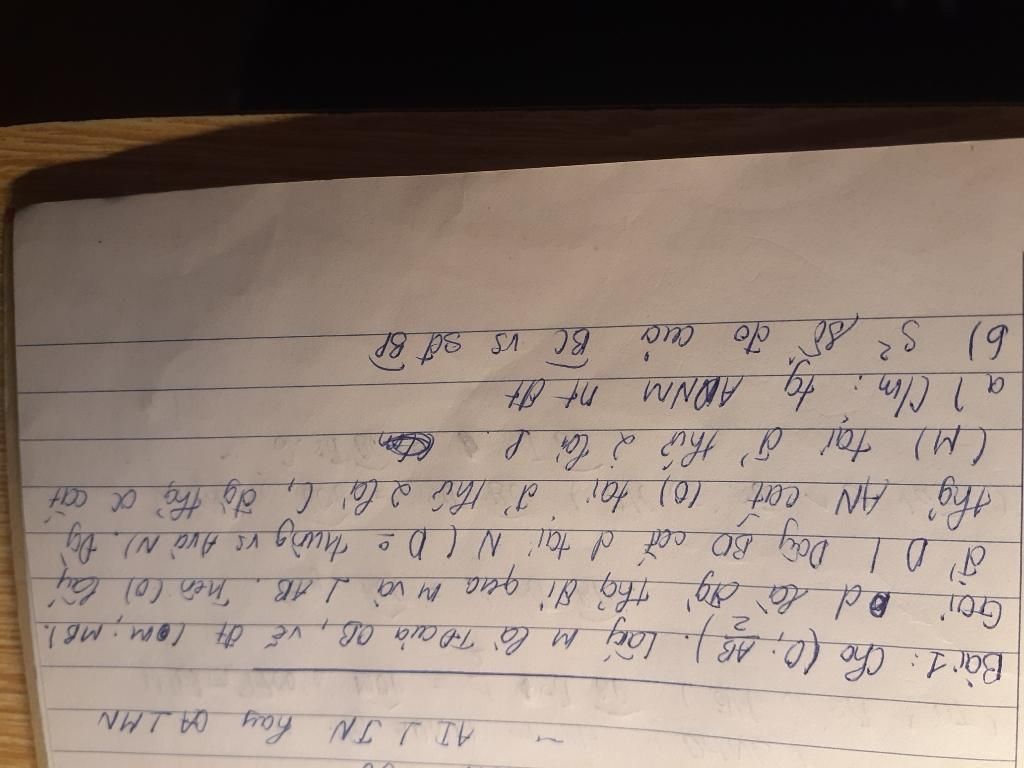 - AI ⊥ JN hay QA ⊥ MN
Bài 1: Cho (O; AB/2). Lấy M là TĐ của OB, vẽ đt (M; MB).
Gọi d là đg thg đi qua M và ⊥ AB. Trên (O) lấy
đ' D ( Dây BD cắt d tại N ( D ≠ trùng vs A và N). Đg
thg AN cắt (O) tại đ' thứ 2 là C, đg thg cắt
(M) tại đ' thứ 2 là P.
a) C/m: tg ADNM nt đt
b) S² số đo của BC vs sđ BP